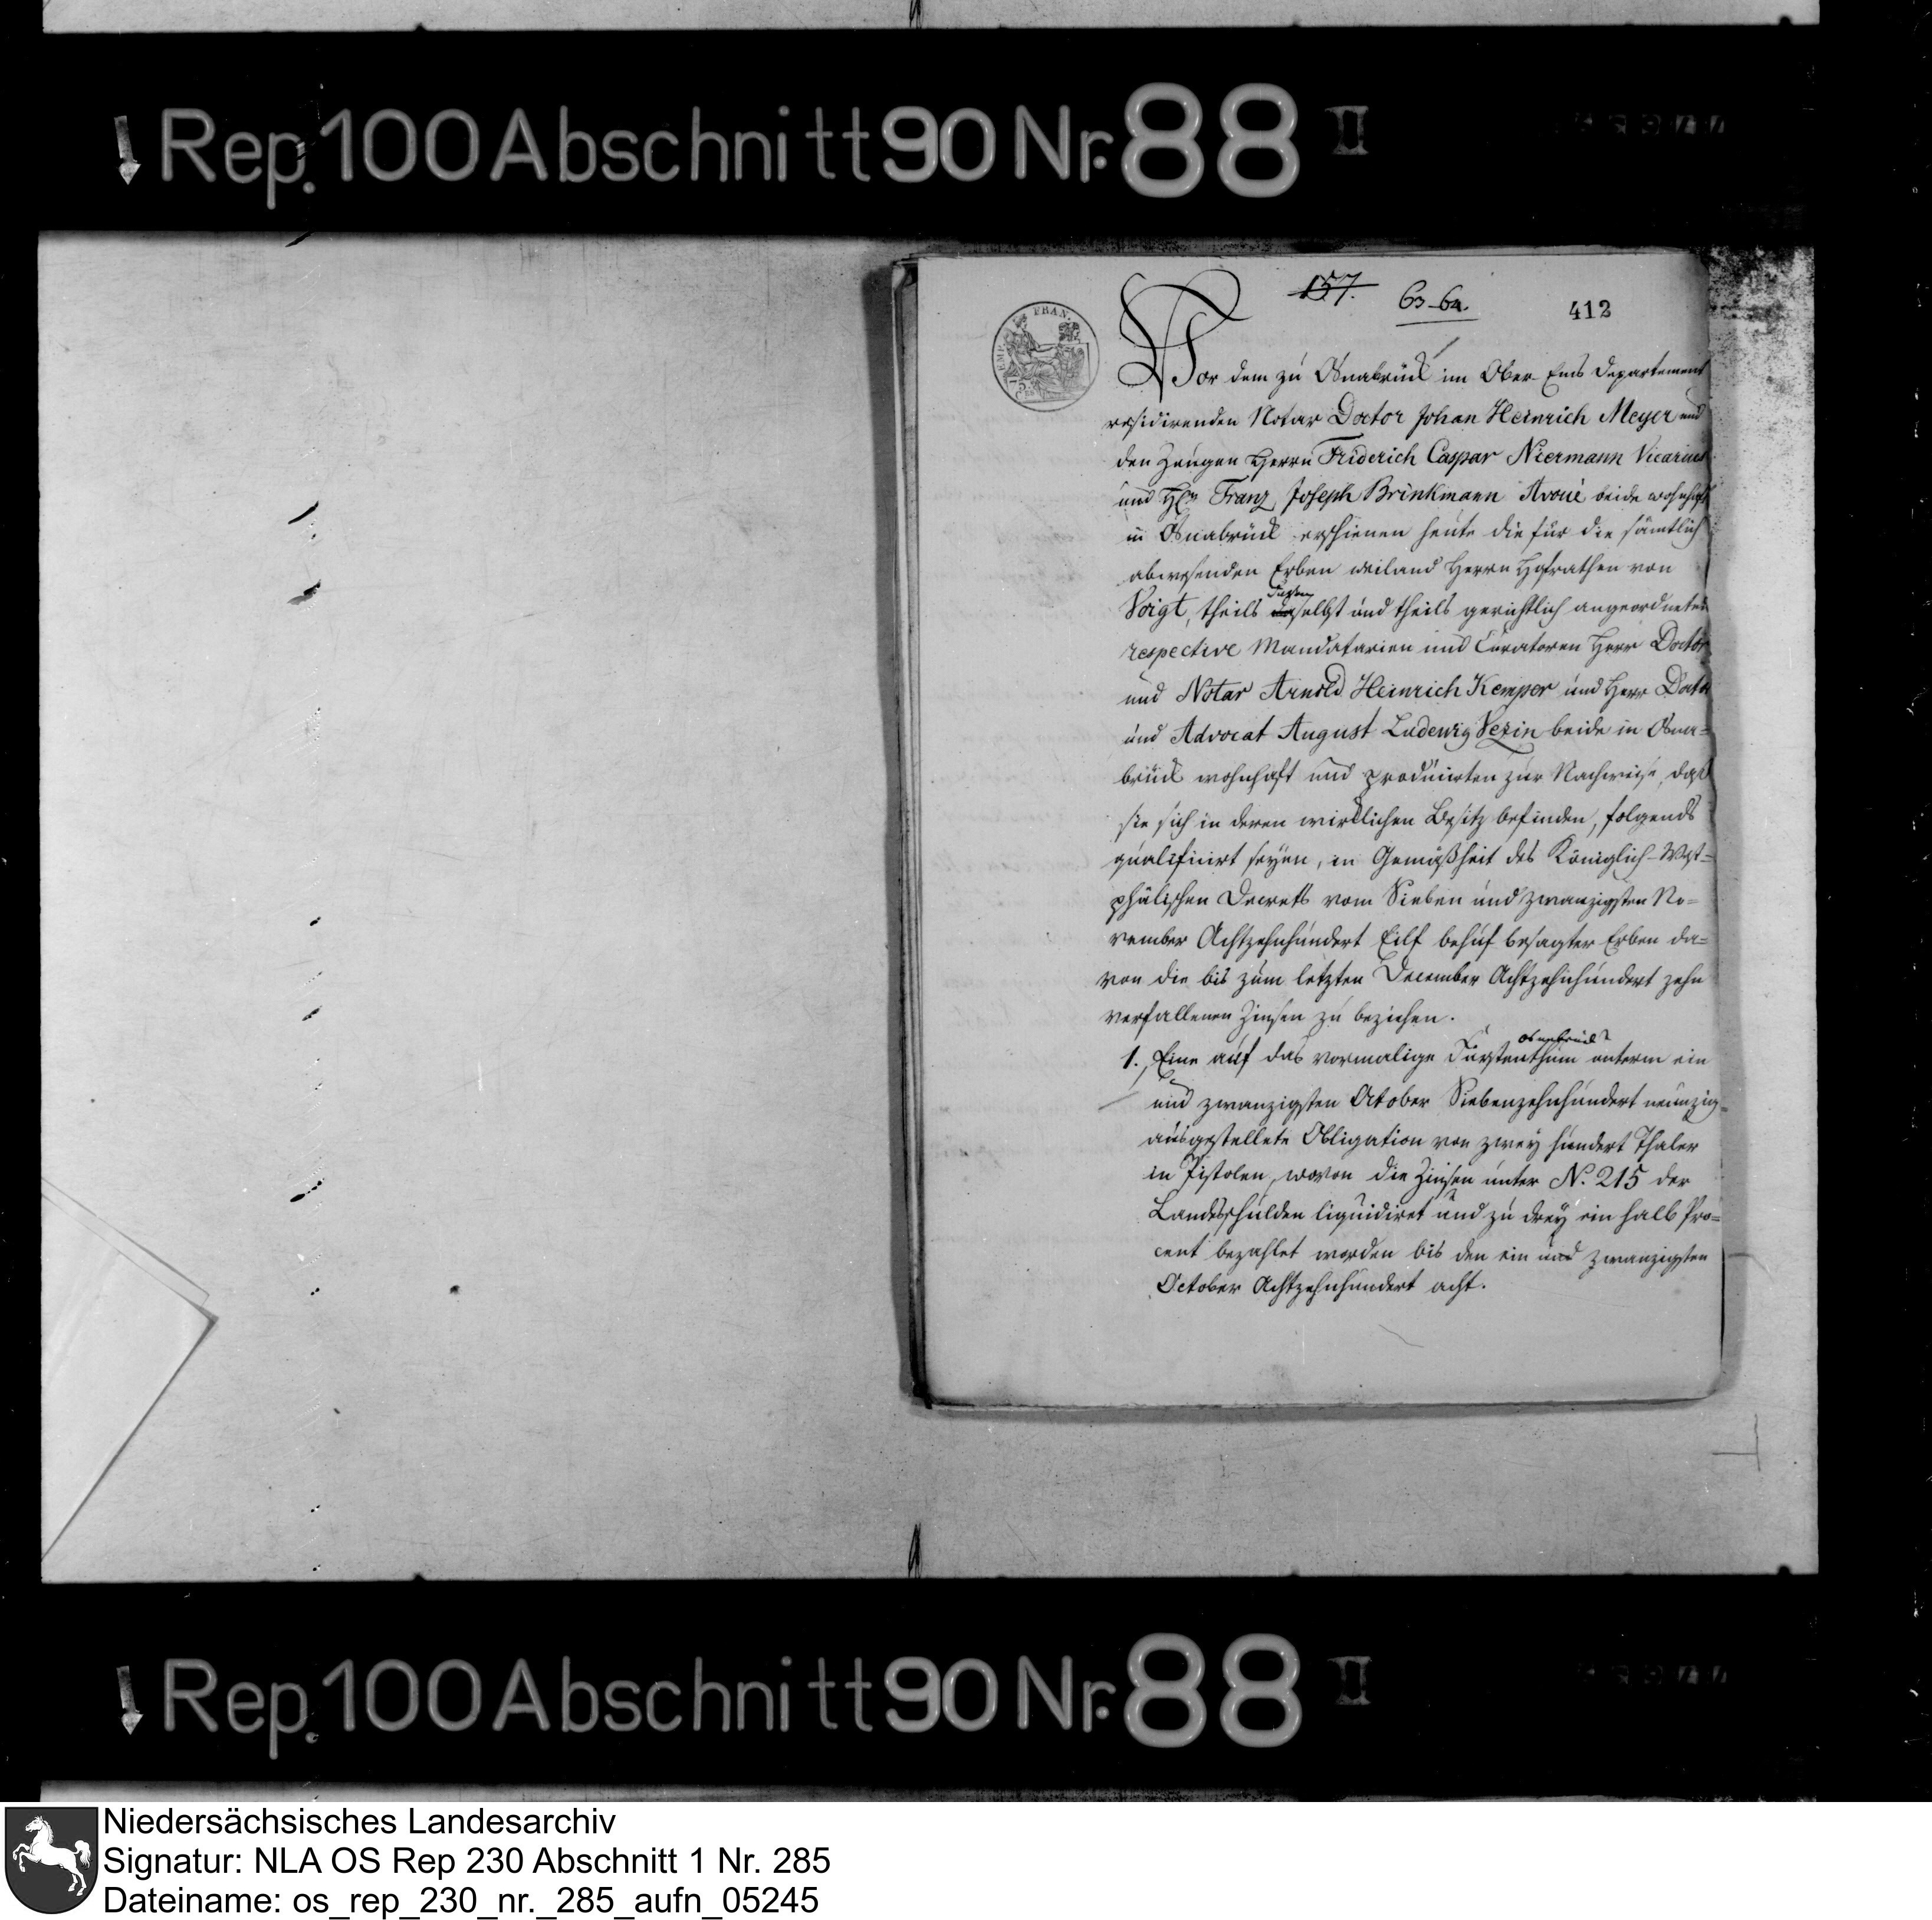 Rep. 100 Abschnitt 90 Nr. 88 II
157. 63-64. 412
EMP. FRAN.
75 CES
Vor dem zu Osnabrück im Ober-Ems Departement
residirenden Notar Doctor Johan Heinrich Meyer und
den Zeugen Herrn Friderich Caspar Niermann Vicarius
und Hr. Franz Joseph Brinkmann Avoué beide wohnhaft
in Osnabrück erschienen heute die für die sämtlich
abwesenden Erben weiland Herrn Hofrathen von
Voigt, theils selbst und theils gerichtlich angeordneten
respective Mandatarien und Curatoren Herr Doctor
und Notar Arnold Heinrich Kemper und Herr Doctor
und Advocat August Ludewig Vezin beide in Osna=
brück wohnhaft und producirten zur Nachweise, daß
sie sich in deren wirklichen Besitz befinden, folgends
qualificirt seyen, in Gemäßheit des Königlich-West=
phälischen Decrets vom Sieben und zwanzigsten No=
vember Achtzehnhundert Eilf behuf besagter Erben da=
von die bis zum letzten December Achtzehnhundert zehn
verfallenen Zinsen zu beziehen.
Osnabrück
1. Eine auf das vormalige Fürstenthum unterm ein
und zwanzigsten October Siebenzehnhundert neunzig
ausgestellete Obligation von zwey hundert Thaler
in Pistolen, wovon die Zinsen unter N. 215 der
Landesschulden liquidiret und zu drey ein halb Pro=
cent bezahlet worden bis den ein und zwanzigsten
October Achtzehnhundert acht.
Rep. 100 Abschnitt 90 Nr. 88 II
Niedersächsisches Landesarchiv
Signatur: NLA OS Rep 230 Abschnitt 1 Nr. 285
Dateiname: os_rep_230_nr._285_aufn_05245